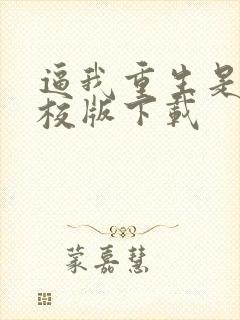 逼我重生是
校版下载
蒙嘉慧